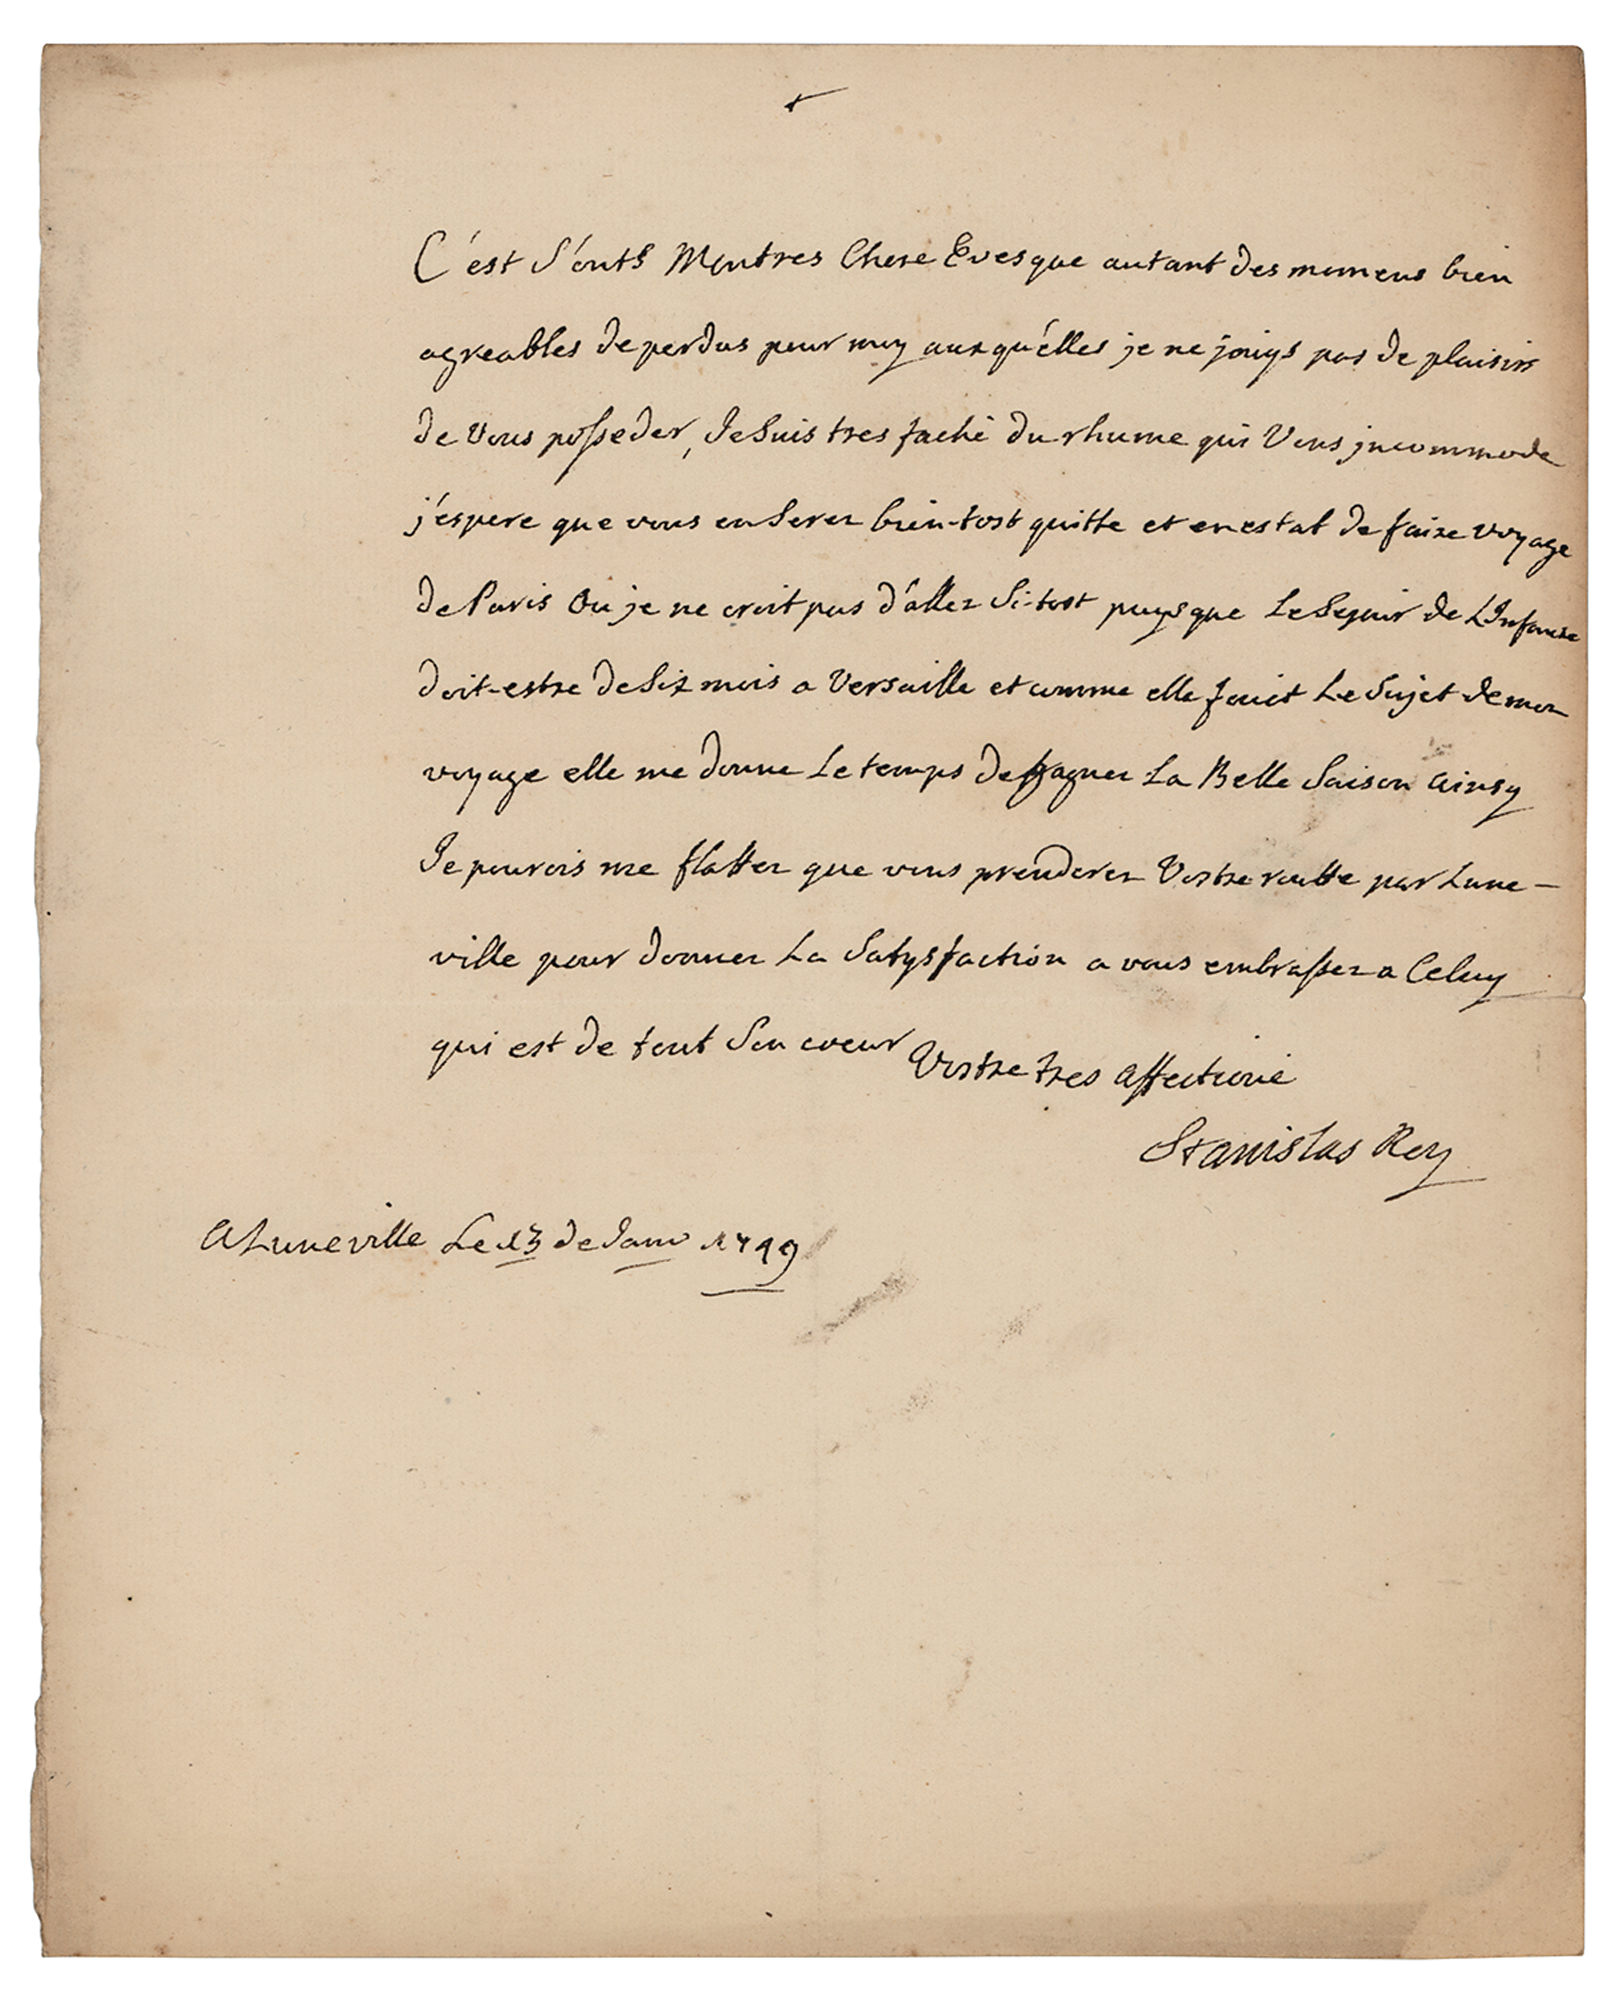 C'est S'onts Mon tres Chere Evesque autant des momens bien
agreables de perdus pour moy auxqu'elles je ne joigs pas de plaisirs
de Vous posseder, Je Suis tres faché du rhume qui Vous jncommode
j'espere que vous en Serez bien-tost quitte et en estat de faire voyage
de Paris Ou je ne croit pas d'aller Si-tost puysque Le Sejour de L'Infante
doit-estre de Six mois a Versaille et comme elle faict Le Sujet de mon
voyage elle me donne Le temps de gagner La Belle Saison ainsy
Je pourois me flatter que vous prenderez Vostre routte par Lune-
ville pour donner La Satysfaction a vous embrasser a Celuy
qui est de tout Son coeur Vostre tres affectioné
Stanislas Roy
A Luneville Le 13 de Janv 1749